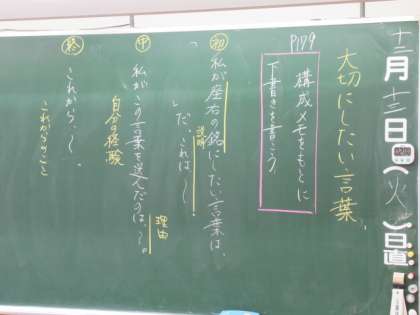 十二月十三日(火)日直
大切にしたい言葉
P179
構成メモをもとに
下書きを書こう
初 私が座右の銘にしたい言葉は、
「 」だ。これは~
説明
中 私がこの言葉を選んだのは、~。
理由
自分の経験
終 これから、~。
これからのこと